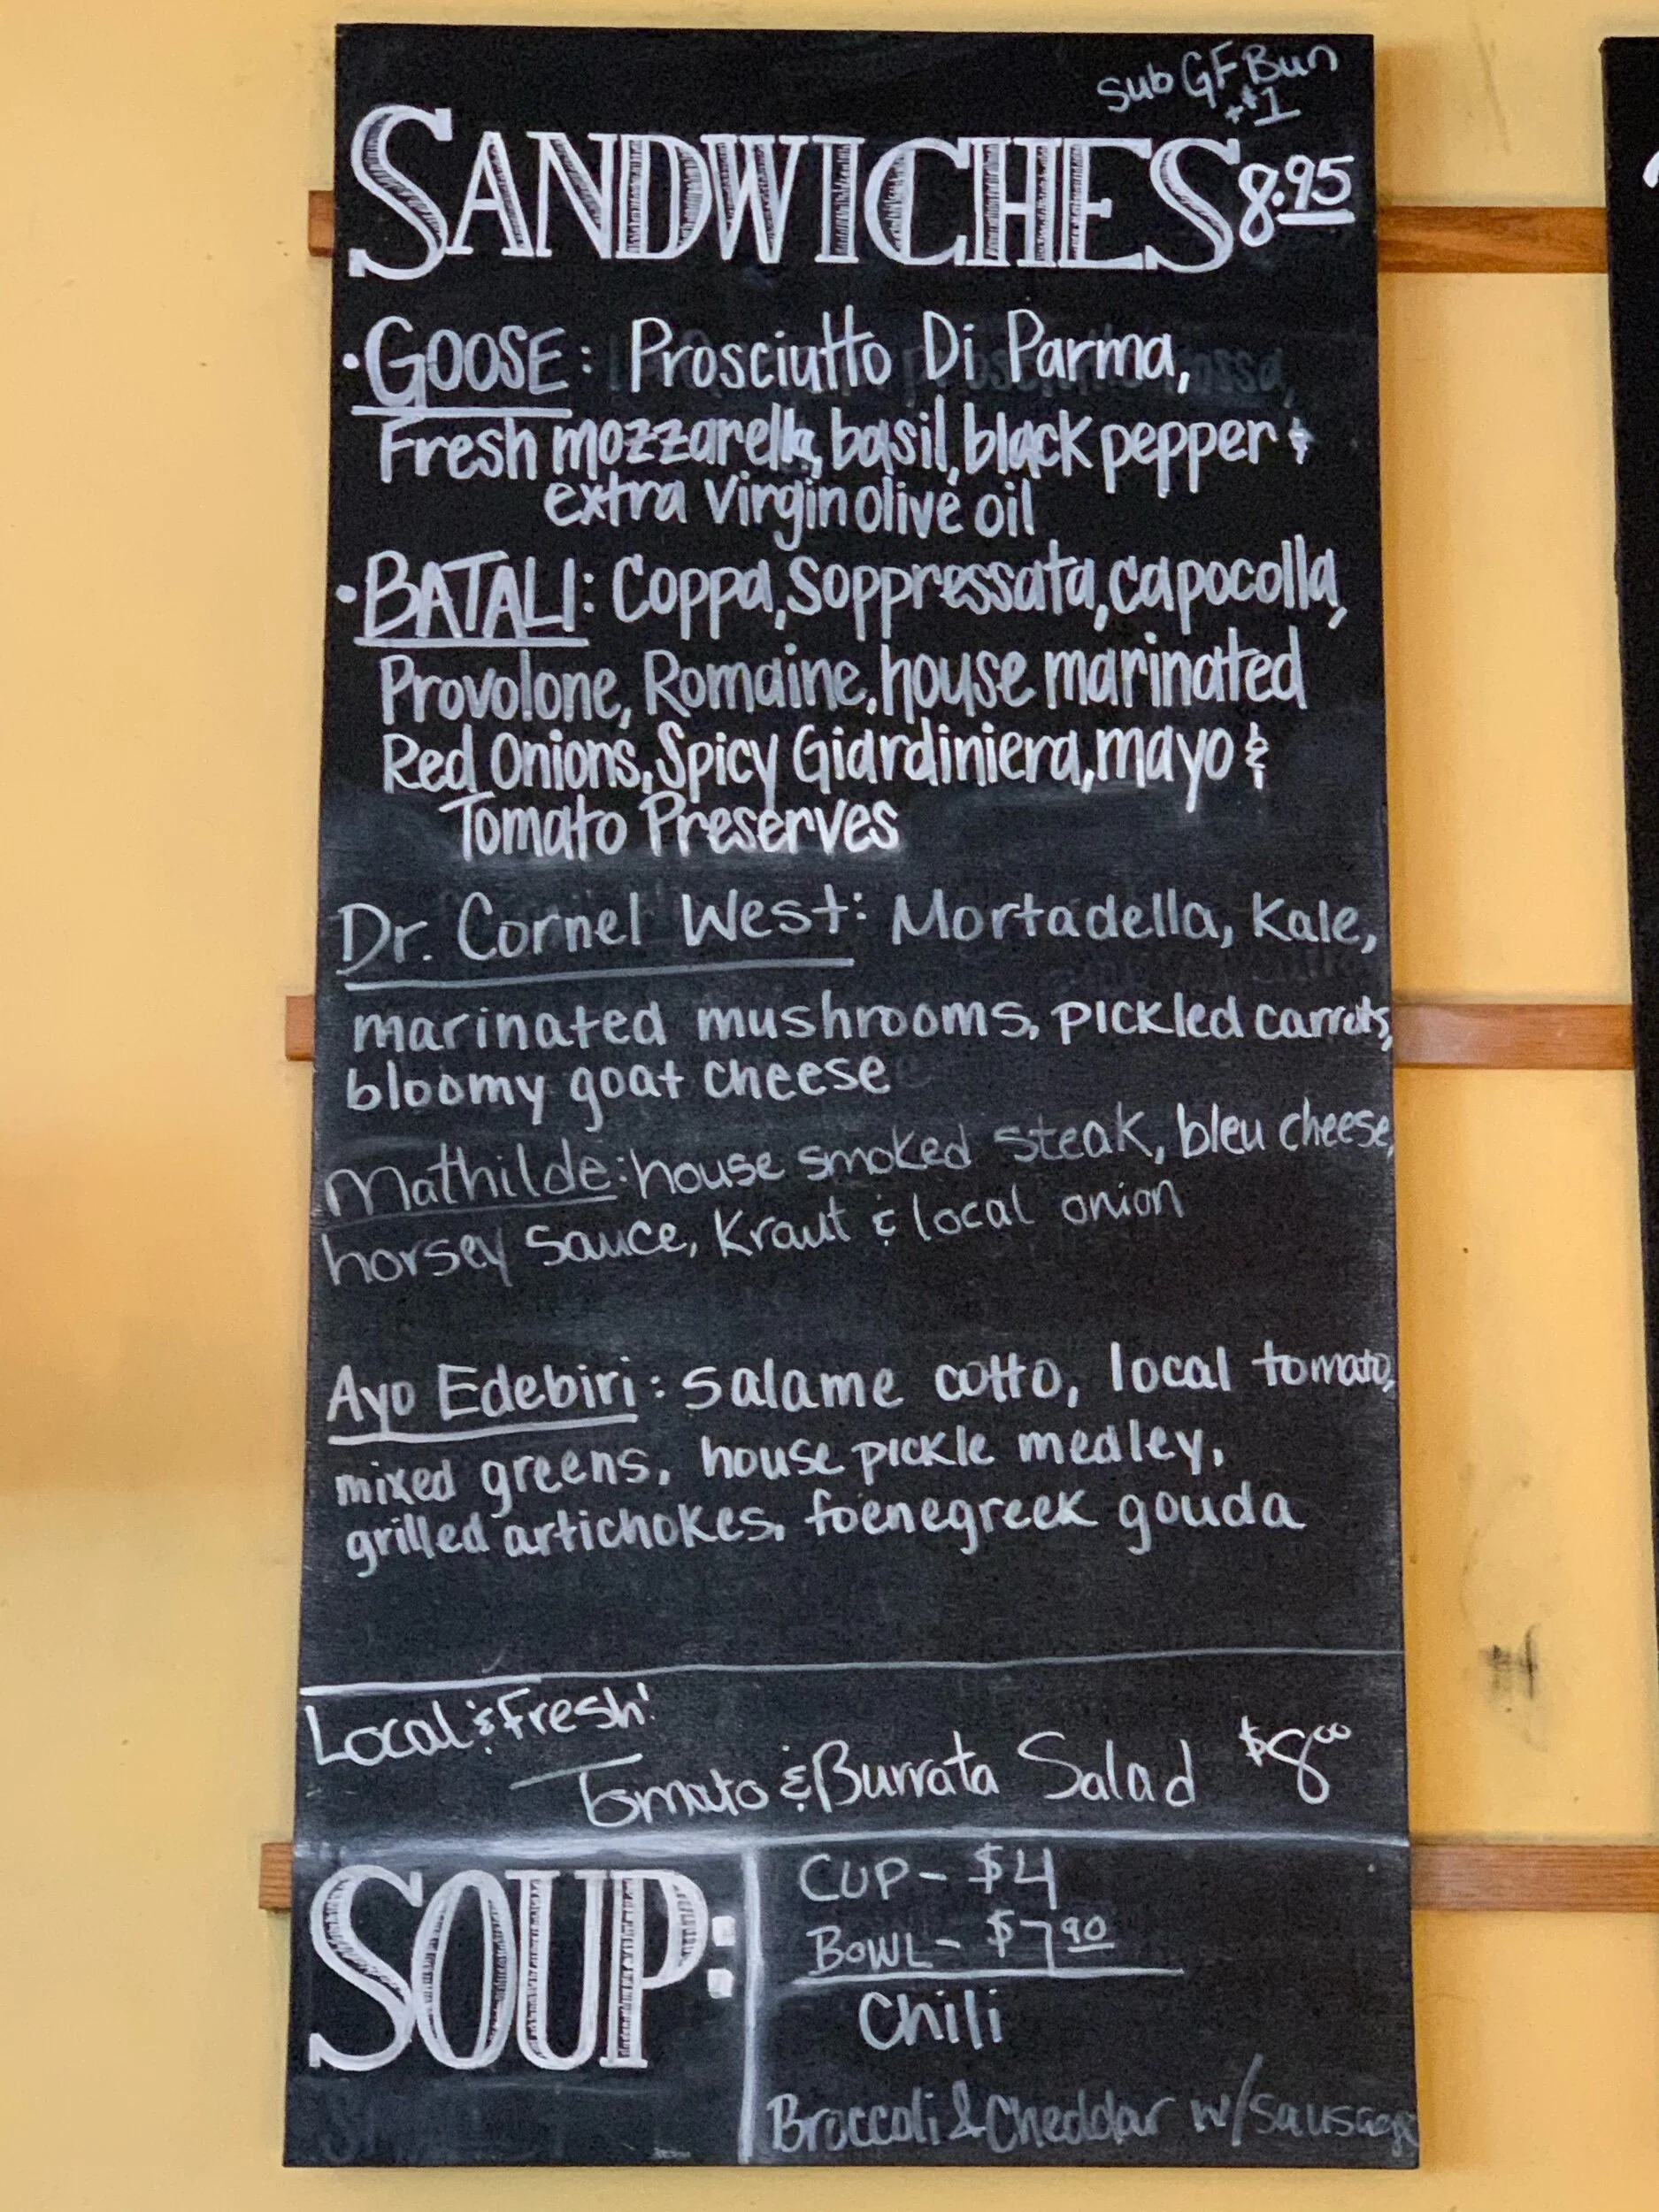 Sub GF Bun
+$1
SANDWICHES 8.95
·GOOSE: Prosciutto Di Parma,
Fresh mozzarella, basil, black pepper &
extra virgin olive oil
·BATALI: Coppa, Soppressata, capocolla,
Provolone, Romaine, house marinated
Red Onions, Spicy Giardiniera, mayo &
Tomato Preserves
Dr. Cornel West: Mortadella, Kale,
marinated mushrooms, pickled carrots,
bloomy goat cheese
Mathilde: house smoked steak, bleu cheese,
horsey sauce, Kraut & local onion
Ayo Edebiri: salame cotto, local tomato,
mixed greens, house pickle medley,
grilled artichokes, foenegreek gouda
Local & Fresh!
Tomato & Burrata Salad $8.00
SOUP:
CUP - $4
BOWL - $7.90
Chili
Broccoli & Cheddar w/sausage